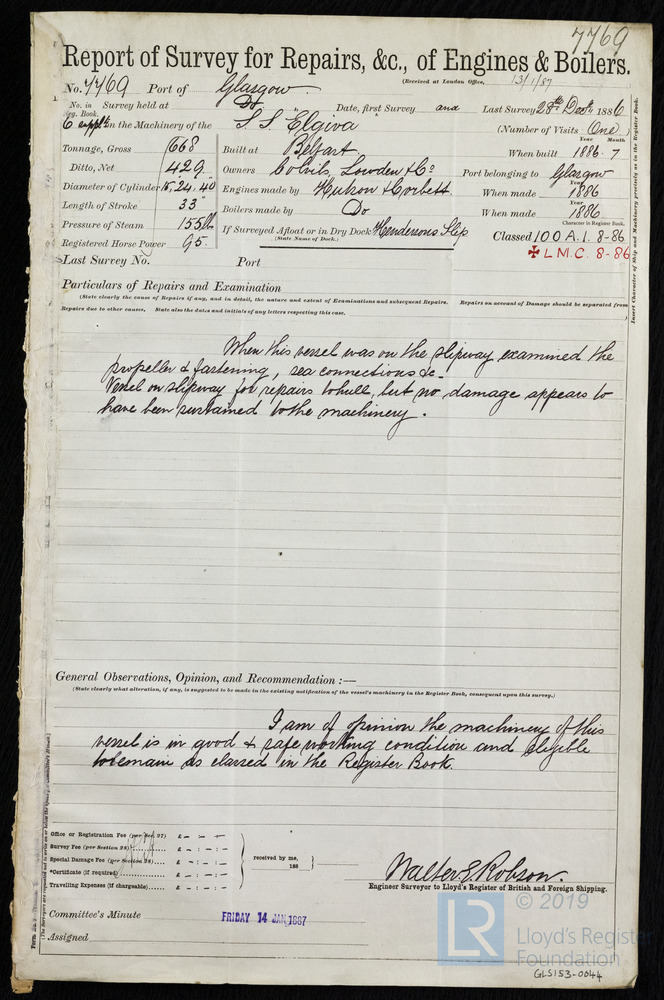 7769
Report of Survey for Repairs, &c., of Engines & Boilers.
(Received at London Office, 13/1/87
No. 7769 Port of Glasgow
No. in Reg. Book. Survey held at Do Date, first Survey and Last Survey 28th Decr 1886
6 suppl on the Machinery of the S.S. "Elgiva (Number of Visits One)
Tonnage, Gross 668 Built at Belfast When built Year 1886 Month 7
Ditto, Net 429 Owners Colvils, Lowden & Co Port belonging to Glasgow
Diameter of Cylinder 15, 24, 40 Engines made by Hutson & Corbett When made Year 1886
Length of Stroke 33" Boilers made by Do When made Year 1886
Pressure of Steam 155lb If Surveyed Afloat or in Dry Dock Hendersons Slip Character in Register Book.
(State Name of Dock.) Classed 100 A.1. 8-86
Registered Horse Power 95 ✠ L.M.C. 8-86
Last Survey No. Port
Insert Character of Ship and Machinery precisely as in the Register Book.
Particulars of Repairs and Examination
(State clearly the cause of Repairs if any, and in detail, the nature and extent of Examinations and subsequent Repairs. Repairs on account of Damage should be separated from
Repairs due to other causes, State also the dates and initials of any letters respecting this case.
When this vessel was on the slipway examined the
propeller & fastening, sea connections &c.
Vessel on slipway for repairs to hull, but no damage appears to
have been sustained to the machinery.
General Observations, Opinion, and Recommendation :—
(State clearly what alteration, if any, is suggested to be made in the existing notification of the vessel's machinery in the Register Book, consequent upon this survey.)
I am of opinion the machinery of this
vessel is in good & safe working condition and eligible
to remain as classed in the Register Book.
Office or Registration Fee (per Sec. 27) £ - - -
Survey Fee (per Section 28) £ - : - : -
Special Damage Fee (per Section 28) £ - : - : -
*Certificate (if required) £ - : - : -
Travelling Expenses (if chargeable) £ - : - : -
received by me,
188
Walter E. Robson.
Engineer Surveyor to Lloyd's Register of British and Foreign Shipping.
Committee's Minute FRIDAY 14 JAN 1887
Assigned
© 2019
LR
Lloyd's Register
Foundation
GLS153-0044